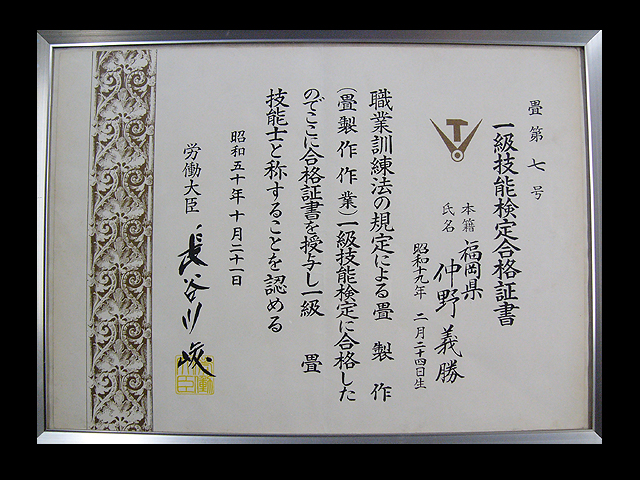 畳第七号
一級技能検定合格証書
本籍 福岡県
氏名 仲野義勝
昭和十九年 二月二十四日生
職業訓練法の規定による畳製作
(畳製作作業)一級技能検定に合格した
のでここに合格証書を授与し一級 畳
技能士と称することを認める
昭和五十年十月二十一日
労働大臣 長谷川峻